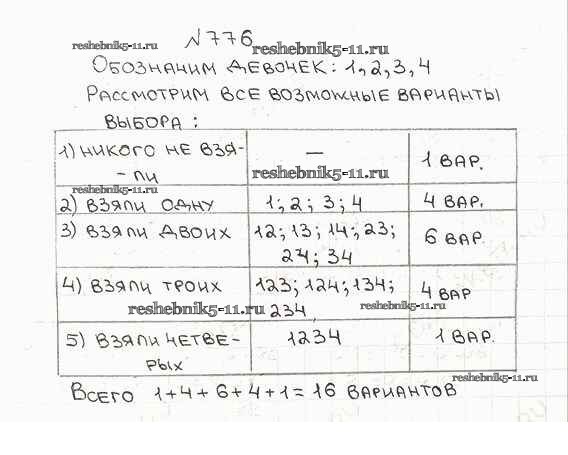 № 776
reshebnik5-11.ru reshebnik5-11.ru
ОБОЗНАЧИМ ДЕВОЧЕК: 1, 2, 3, 4
РАССМОТРИМ ВСЕ ВОЗМОЖНЫЕ ВАРИАНТЫ
ВЫБОРА:
1) НИКОГО НЕ ВЗЯ- — 1 ВАР.
- ЛИ reshebnik5-11.ru
reshebnik5-11.ru
2) ВЗЯЛИ ОДНУ 1; 2; 3; 4 4 ВАР.
3) ВЗЯЛИ ДВОИХ 12; 13; 14; 23; 6 ВАР.
24; 34
4) ВЗЯЛИ ТРОИХ 123; 124; 134; 4 ВАР
reshebnik5-11.ru 234 reshebnik5-11.ru
5) ВЗЯЛИ ЧЕТВЕ- 1234 1 ВАР.
РЫХ
reshebnik5-11.ru
ВСЕГО 1+4+6+4+1=16 ВАРИАНТОВ